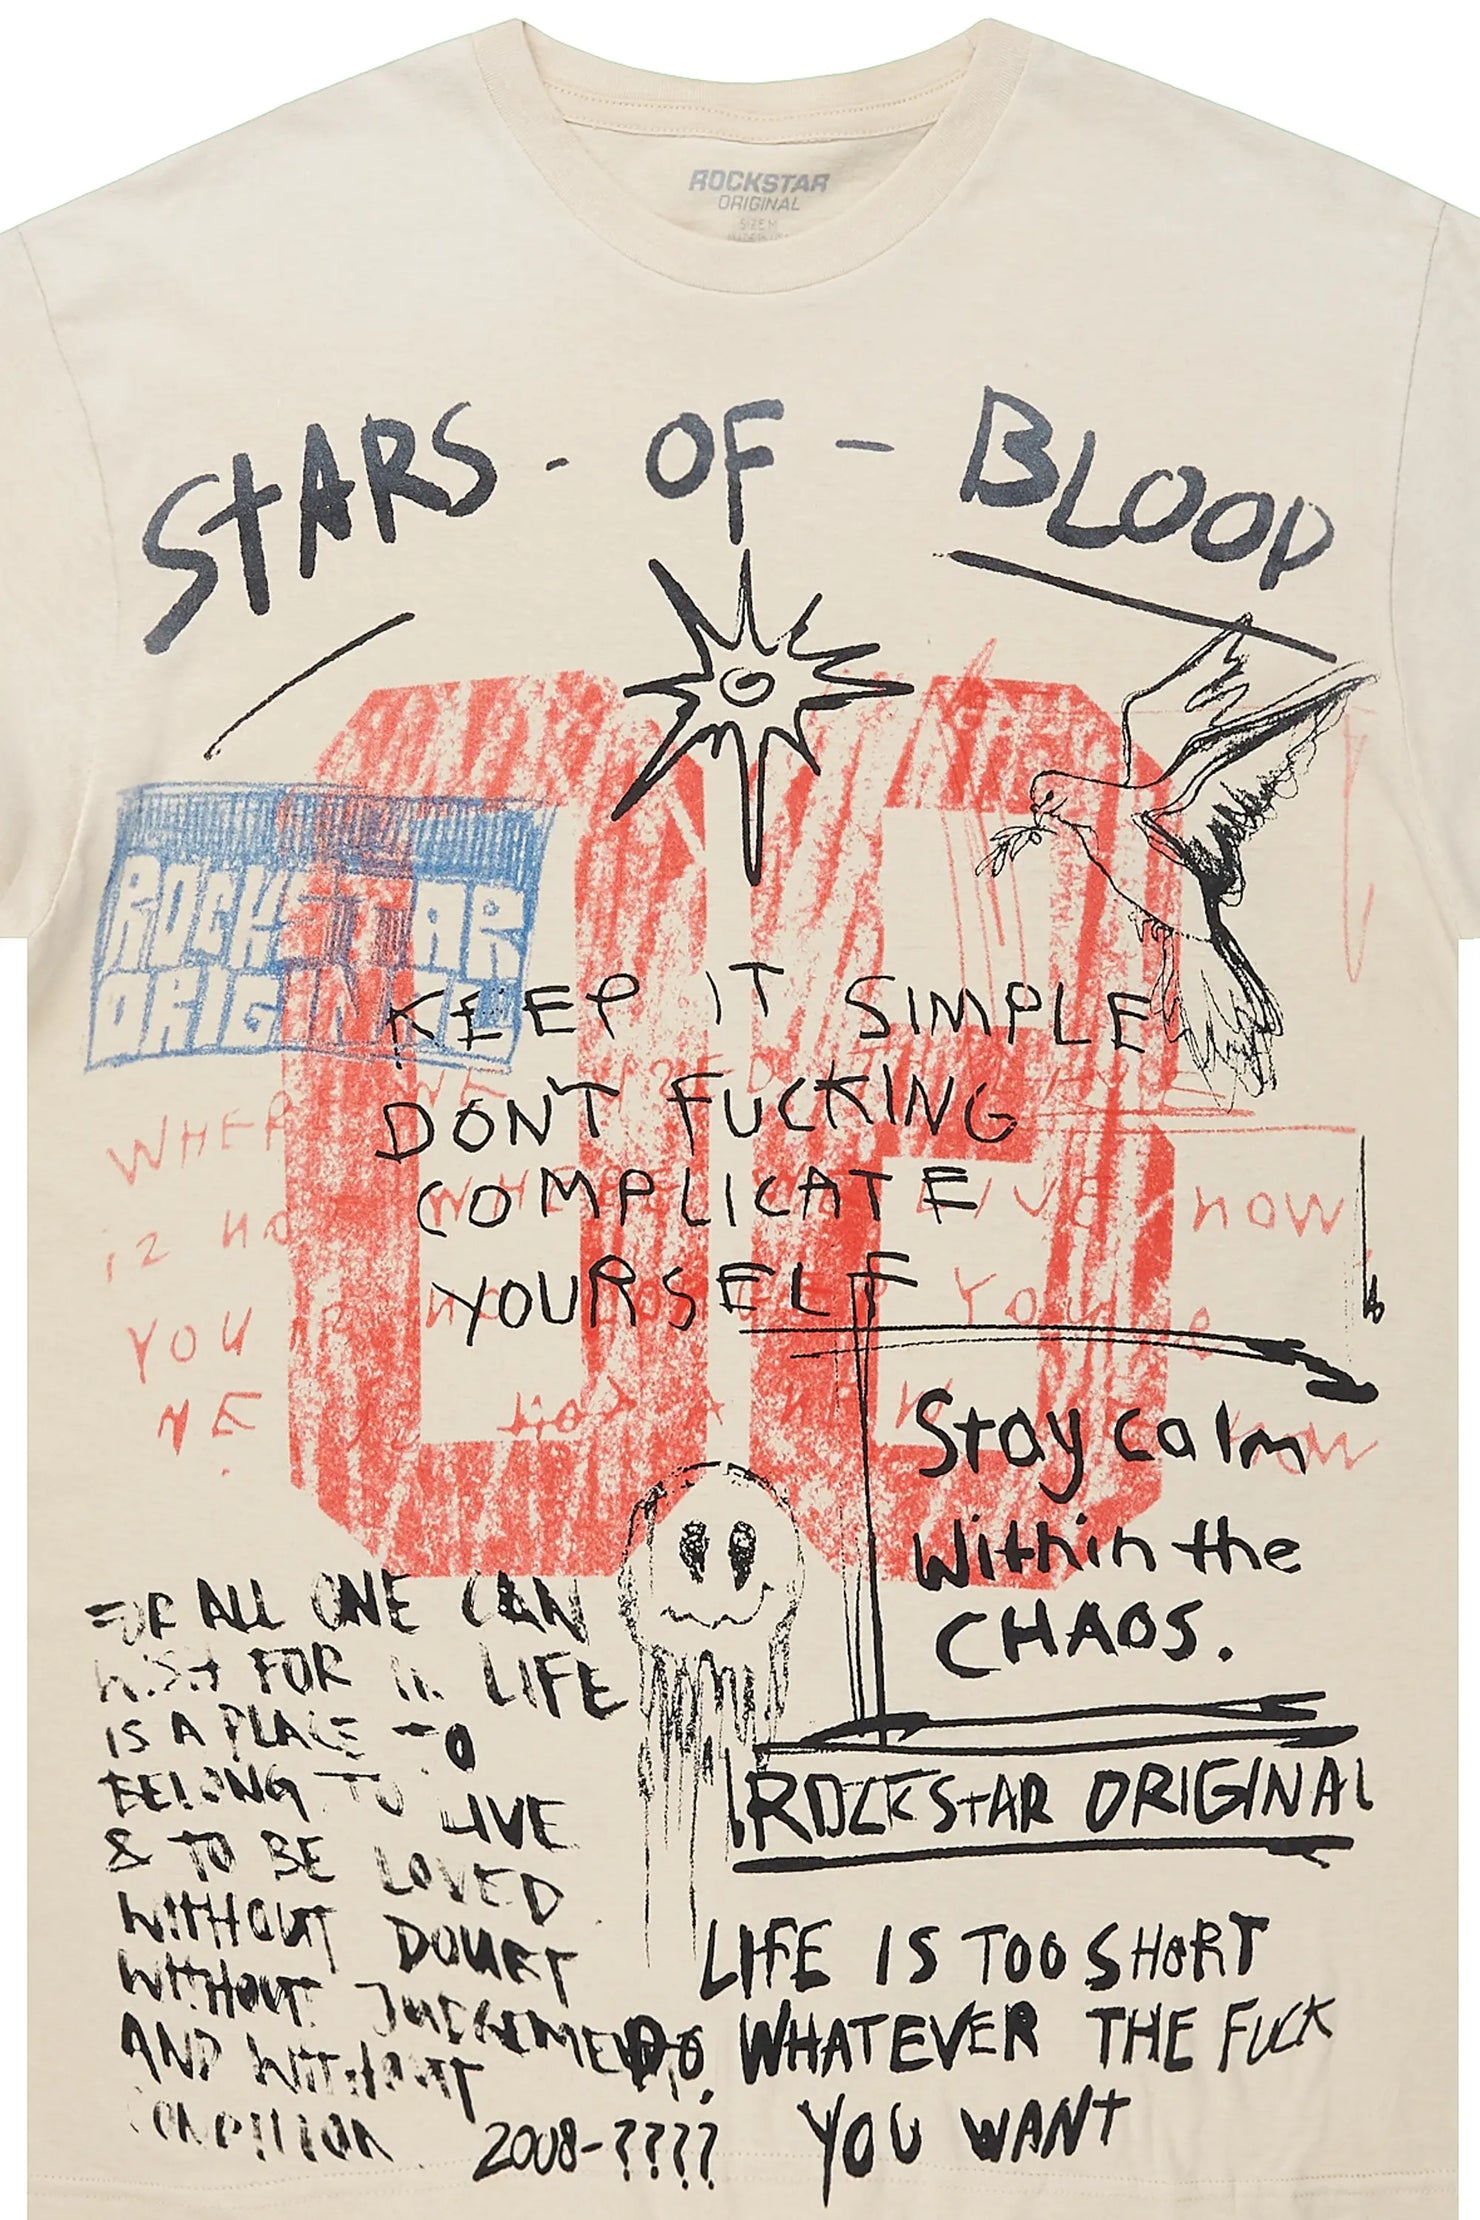 ROCKSTAR
ORIGINAL
SIZE M
STARS - OF - BLOOD
08
ROCKSTAR
ORIGINAL
KEEP IT SIMPLE
DONT FUCKING
COMPLICATE
YOURSELF
WHERE WE
iz NOT WHERE LIVE NOW
YOU ARE NO YOU
ME NOT A NEW NOW
Stay calm
Within the
CHAOS.
FOR ALL ONE CAN
WISH FOR IN LIFE
IS A PLACE TO
BELONG TO LIVE
& TO BE LOVED
WITHOUT DOUBT
WITHOUT JUDGEMENT
AND WITHOUT
CONDITION
2008-????
ROCKSTAR ORIGINAL
LIFE IS TOO SHORT
DO WHATEVER THE FUCK
YOU WANT